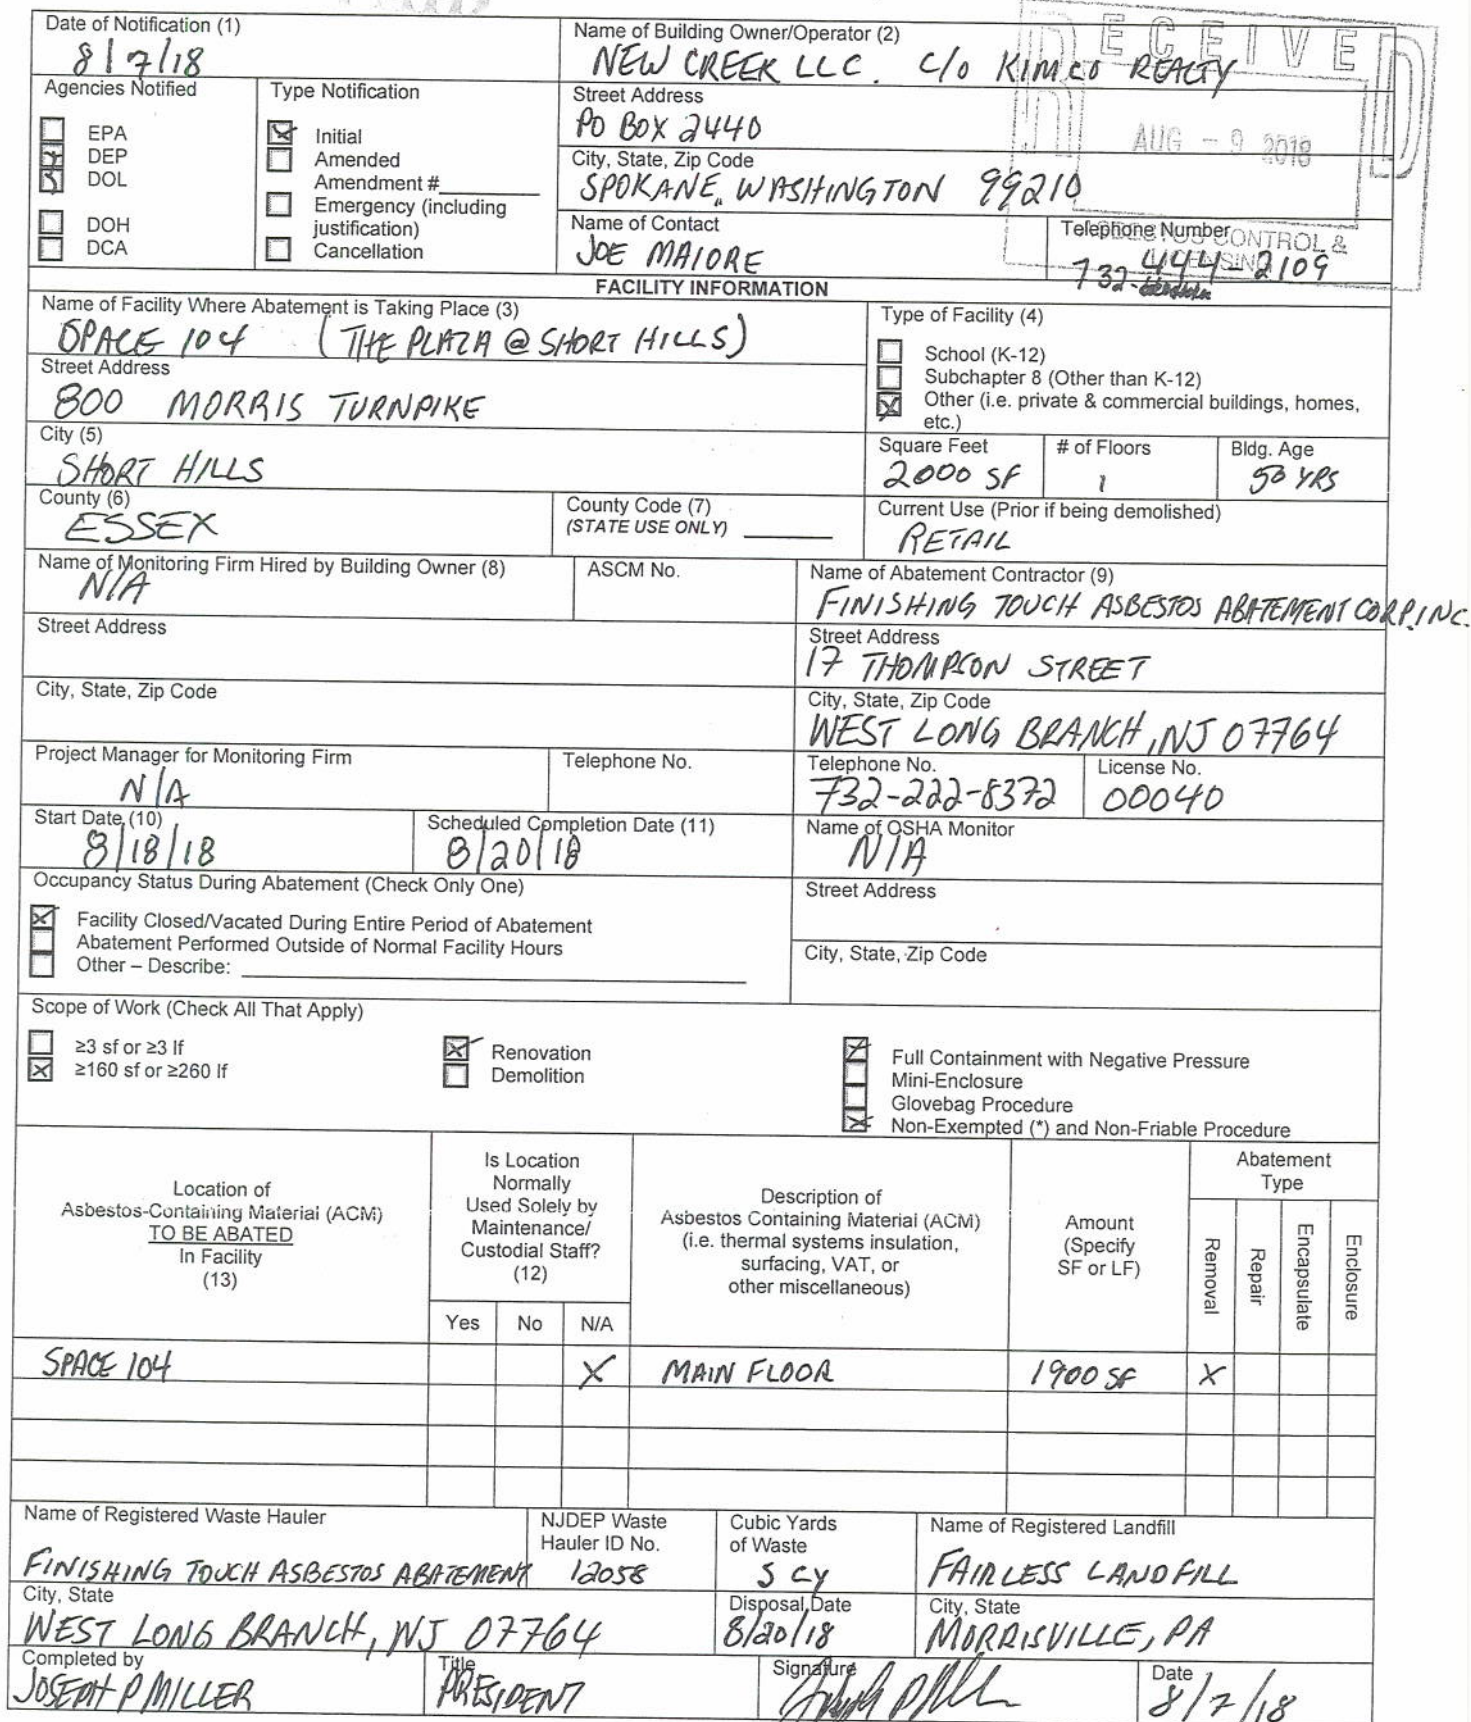 Date of Notification (1)
8/7/18
Name of Building Owner/Operator (2)
NEW CREEK LLC. C/O KIMCO REALTY
RECEIVED
AUG - 9 2018
CONTROL &
Agencies Notified
EPA
DEP
DOL
DOH
DCA
Type Notification
Initial
Amended
Amendment #
Emergency (including
justification)
Cancellation
Street Address
PO BOX 2440
City, State, Zip Code
SPOKANE, WASHINGTON 99210
Name of Contact
JOE MAIORE
Telephone Number
732-444-2109
FACILITY INFORMATION
Name of Facility Where Abatement is Taking Place (3)
SPACE 104 (THE PLAZA @ SHORT HILLS)
Street Address
800 MORRIS TURNPIKE
City (5)
SHORT HILLS
County (6)
ESSEX
County Code (7)
(STATE USE ONLY)
Type of Facility (4)
School (K-12)
Subchapter 8 (Other than K-12)
Other (i.e. private & commercial buildings, homes,
etc.)
Square Feet
2000 SF
# of Floors
1
Bldg. Age
50 YRS
Current Use (Prior if being demolished)
RETAIL
Name of Monitoring Firm Hired by Building Owner (8)
N/A
ASCM No.
Name of Abatement Contractor (9)
FINISHING TOUCH ASBESTOS ABATEMENT CORP. INC.
Street Address
Street Address
17 THOMPSON STREET
City, State, Zip Code
City, State, Zip Code
WEST LONG BRANCH, NJ 07764
Project Manager for Monitoring Firm
N/A
Telephone No.
Telephone No.
732-222-8372
License No.
00040
Start Date (10)
8/18/18
Scheduled Completion Date (11)
8/20/18
Name of OSHA Monitor
N/A
Occupancy Status During Abatement (Check Only One)
Facility Closed/Vacated During Entire Period of Abatement
Abatement Performed Outside of Normal Facility Hours
Other – Describe:
Street Address
City, State, Zip Code
Scope of Work (Check All That Apply)
≥3 sf or ≥3 lf
≥160 sf or ≥260 lf
Renovation
Demolition
Full Containment with Negative Pressure
Mini-Enclosure
Glovebag Procedure
Non-Exempted (*) and Non-Friable Procedure
Location of
Asbestos-Containing Material (ACM)
TO BE ABATED
In Facility
(13)
Is Location
Normally
Used Solely by
Maintenance/
Custodial Staff?
(12)
Yes No N/A
Description of
Asbestos Containing Material (ACM)
(i.e. thermal systems insulation,
surfacing, VAT, or
other miscellaneous)
Amount
(Specify
SF or LF)
Abatement
Type
Removal
Repair
Encapsulate
Enclosure
SPACE 104 X MAIN FLOOR 1900 SF X
Name of Registered Waste Hauler
FINISHING TOUCH ASBESTOS ABATEMENT
NJDEP Waste
Hauler ID No.
12058
Cubic Yards
of Waste
5 CY
Name of Registered Landfill
FAIRLESS LANDFILL
City, State
WEST LONG BRANCH, NJ 07764
Disposal Date
8/20/18
City, State
MORRISVILLE, PA
Completed by
JOSEPH P MILLER
Title
PRESIDENT
Signature
Date
8/7/18